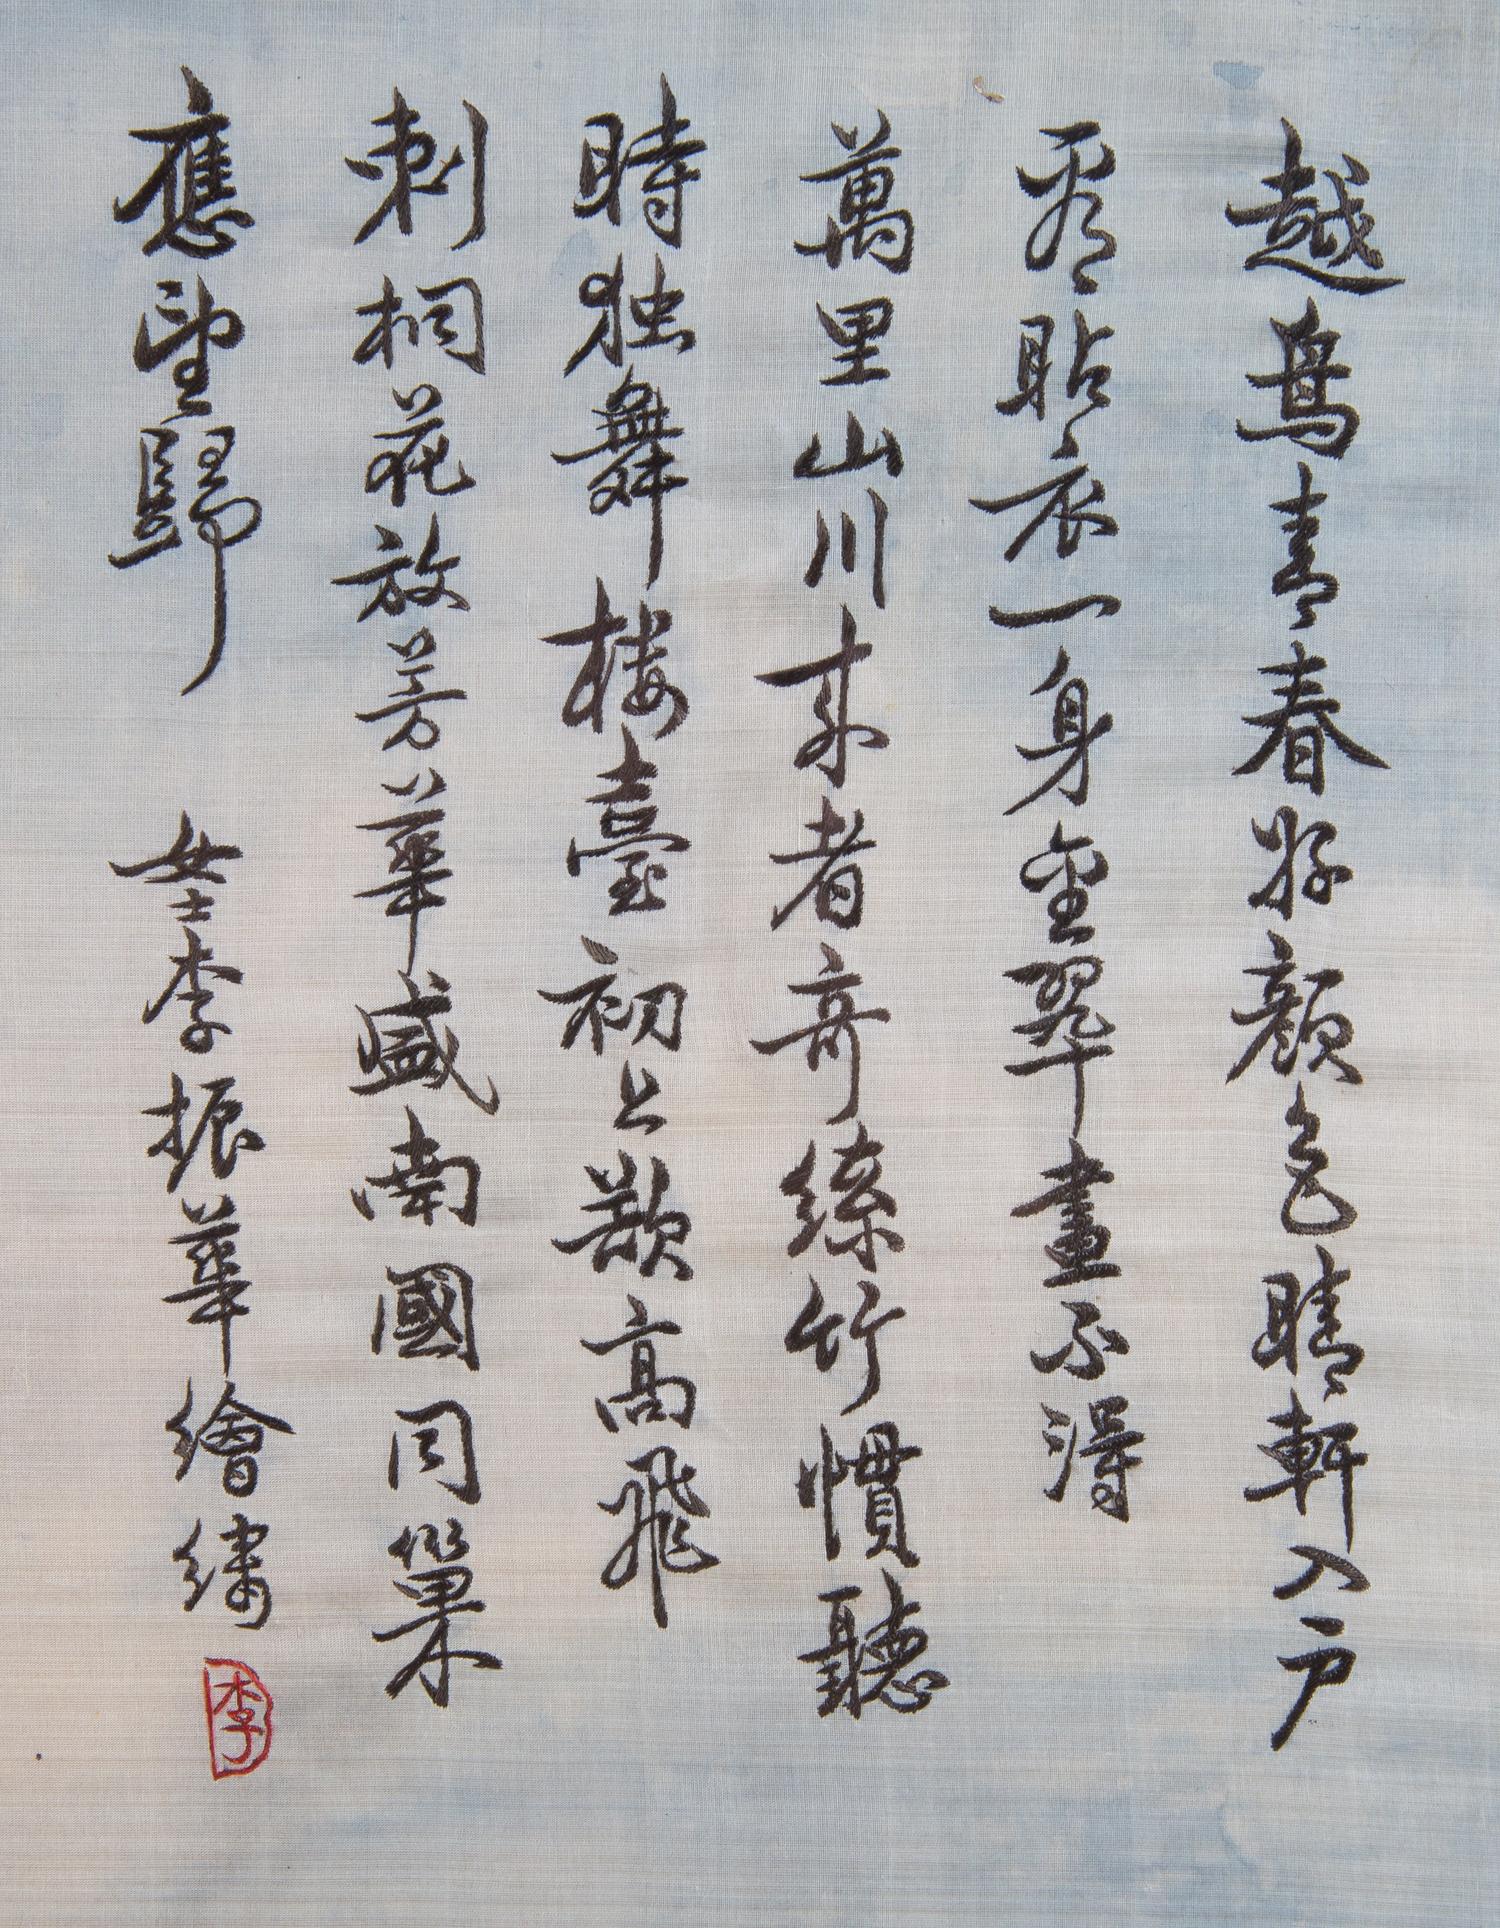 越鳥青春好顏色晴軒入戶
看貼衣一身金翠畫不得
萬里山川來者奇絲竹慣聽
時独舞楼臺初上欲高飛
刺桐花放芳華盛南國同巢
應望歸
女士李振華繪繡
李